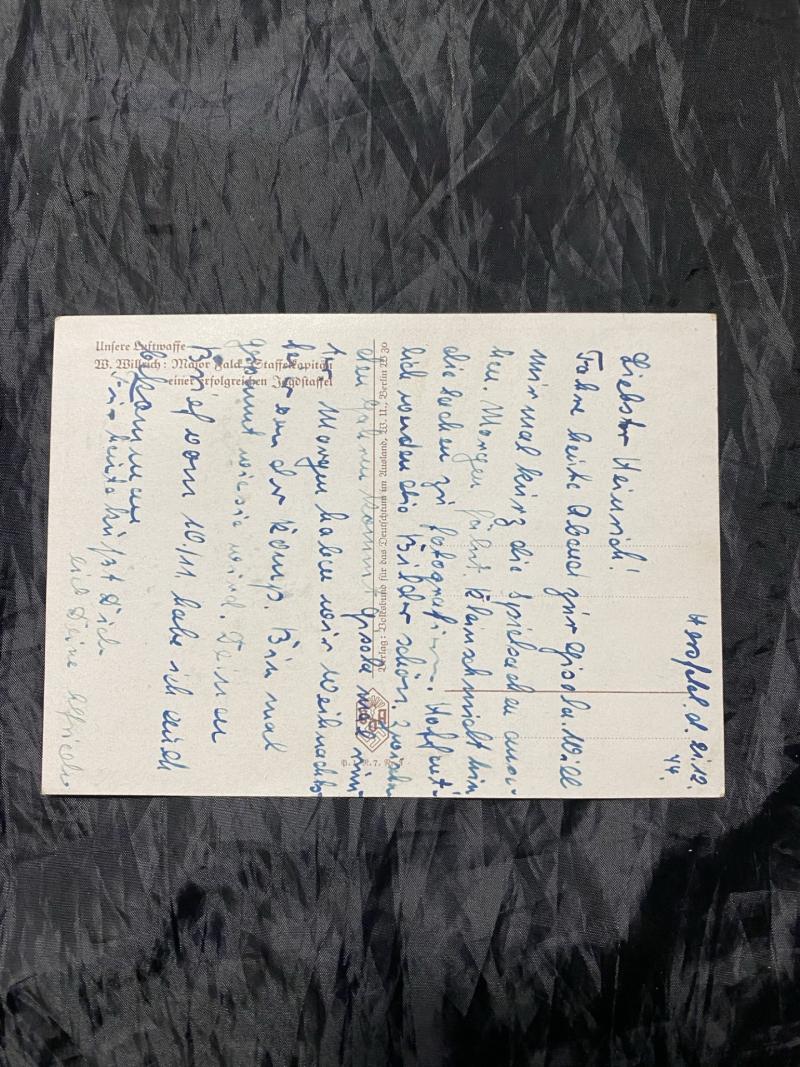 Unsere Luftwaffe
W. Willrich: Major Falck, Staffelkapitän
einer erfolgreichen Jagdstaffel
Verlag: Volksbund für das Deutschtum im Ausland, W. U., Berlin W 30
Hersfeld, d. 21.12.
44.
Liebster Heinrich!
Fahre heute Abend zur Gisela. Will
mir mal kurz die Spielsachen anse-
hen. Morgen fährt Kleinschmidt hin
die Sachen zu fotografieren. Hoffent-
lich werden die Bilder schön.
den kommt
Morgen haben wir Weihnachts-
feier von der Komp. Bin mal
gespannt wie sie wird. Deinen
Brief vom 10/11. habe ich
bekommen
Für heute grüßt Dich
Deine